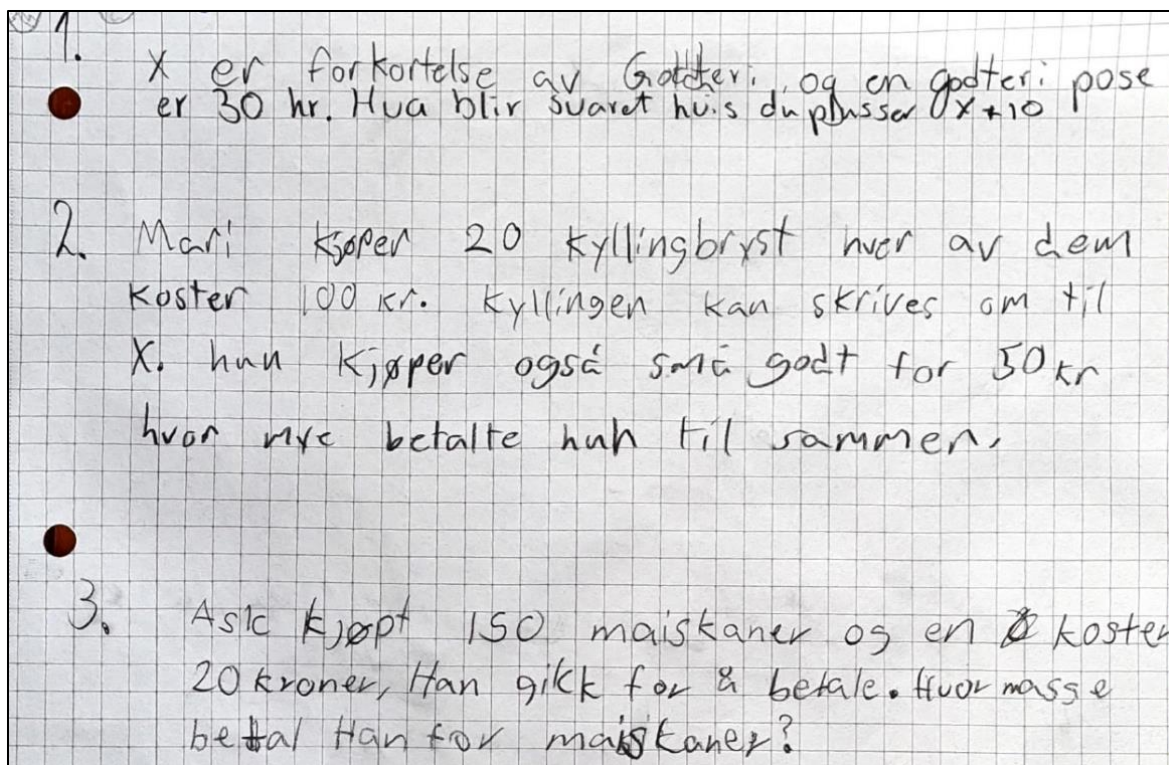 1.
X er forkortelse av Godteri, og en godteri pose
er 30 kr. Hva blir svaret hvis du plusser x+10
2. Mari kjøper 20 kyllingbryst hver av dem
koster 100 kr. kyllingen kan skrives om til
X. hun kjøper også små godt for 50 kr
hvor mye betalte hun til sammen.
3. Ask kjøpt 150 maiskaner og en koster
20 kroner, Han gikk for å betale. Hvor masse
betal Han for maiskaner?